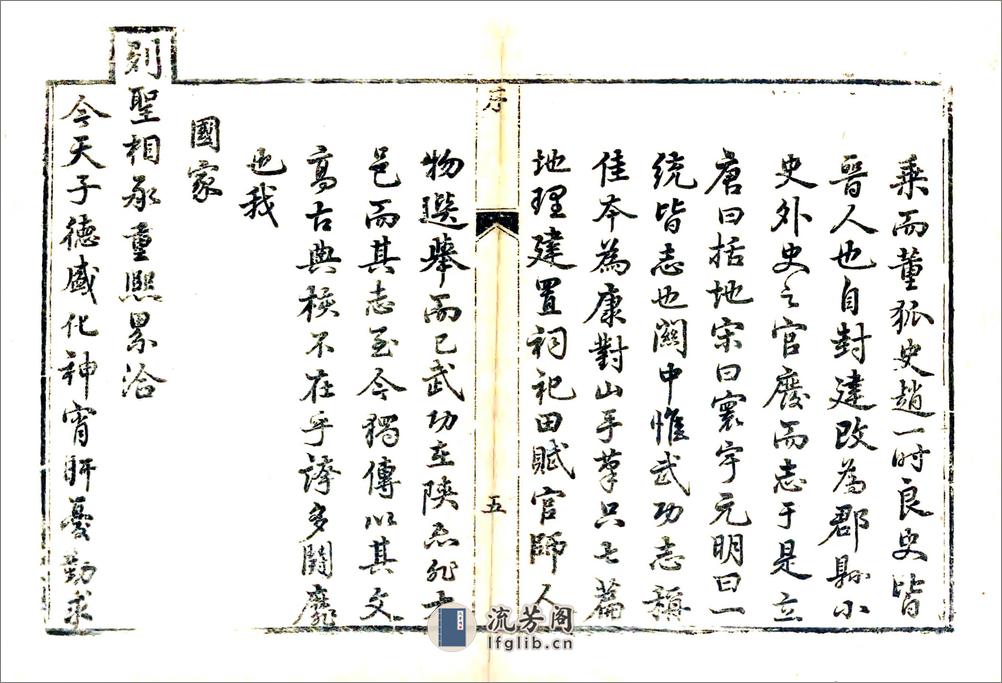 乘而董狐史趙一时良史皆
晉人也自封建改為郡縣小
史外史之官廢而志于是立
唐曰括地宋曰寰宇元明曰一
统皆志也關中惟武功志稱
佳本為康對山手筆只七篇
地理建置祠祀田賦官師人
序
五
物選舉而已武功在陝亦非大
邑而其志至今獨傳以其文
高古典核不在乎誇多鬪靡
也我
國家
列聖相承重熙累洽
今天子德盛化神宵旰憂勤求
流芳阁
lfglib.cn